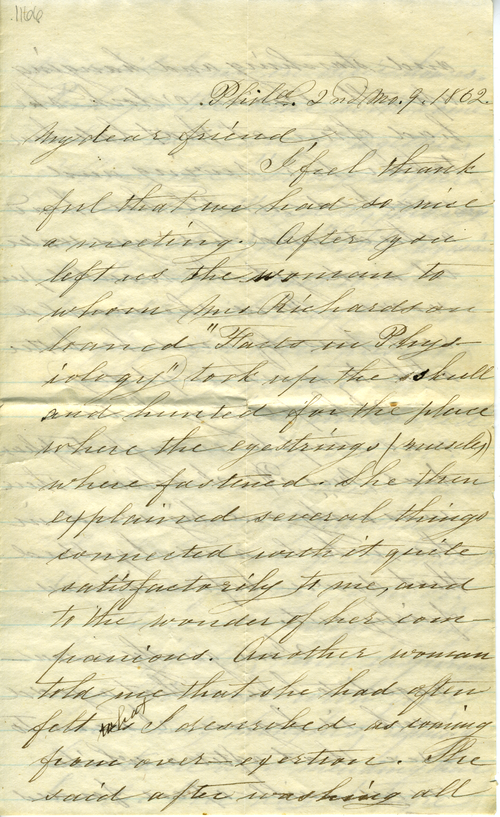 1166
Philada. 2nd Mo. 9. 1862.
My dear friend
I feel thank
ful that we had so nice
a meeting. After you
left us the woman to
whom Mrs Richardson
loaned "Facts in Phys
iology") took up the skull
and hunted for the place
where the eyestrings (muscles)
where fastened. She then
explained several things
connected with it quite
satisfactorily to me, and
to the wonder of her com
panions. Another woman
told me that she had often
felt what I described as coming
from over-exertion. She
said after washing all